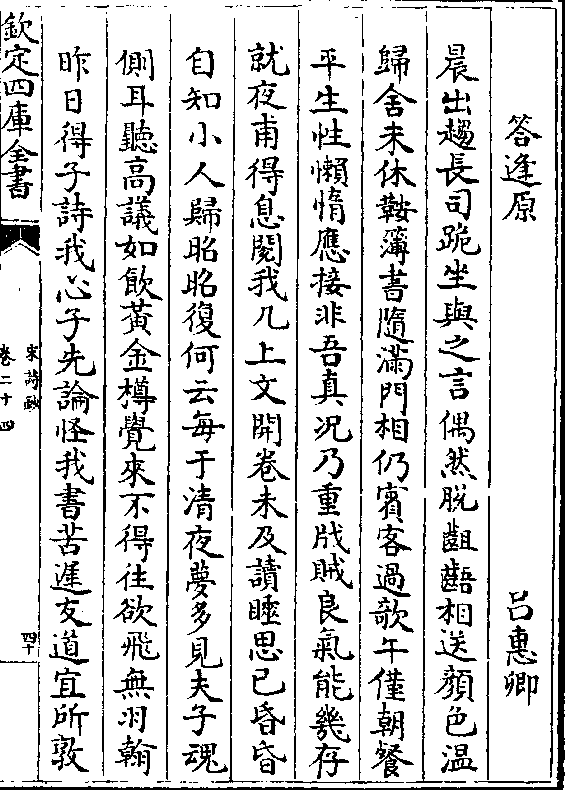 答逢原　呂惠卿
晨出趨長司跪坐與之言偶然脫齟齬相送顏色溫
歸舍未休鞍簿書隨滿門相仍賓客過歌午僅朝餐
平生性懶惰應接非吾真況乃重戕賊良氣能幾存
就夜甫得息閱我几上文開卷未及讀睡思已昏昏
自知小人歸昭昭復何云每于清夜夢多見夫子魂
側耳聽高議如飲黃金樽覺來不得往欲飛無羽翰
昨日得子詩我心子先論怪我書苦遲友道宜所敦
欽定四庫全書
宋詩鈔
卷二十四
四十